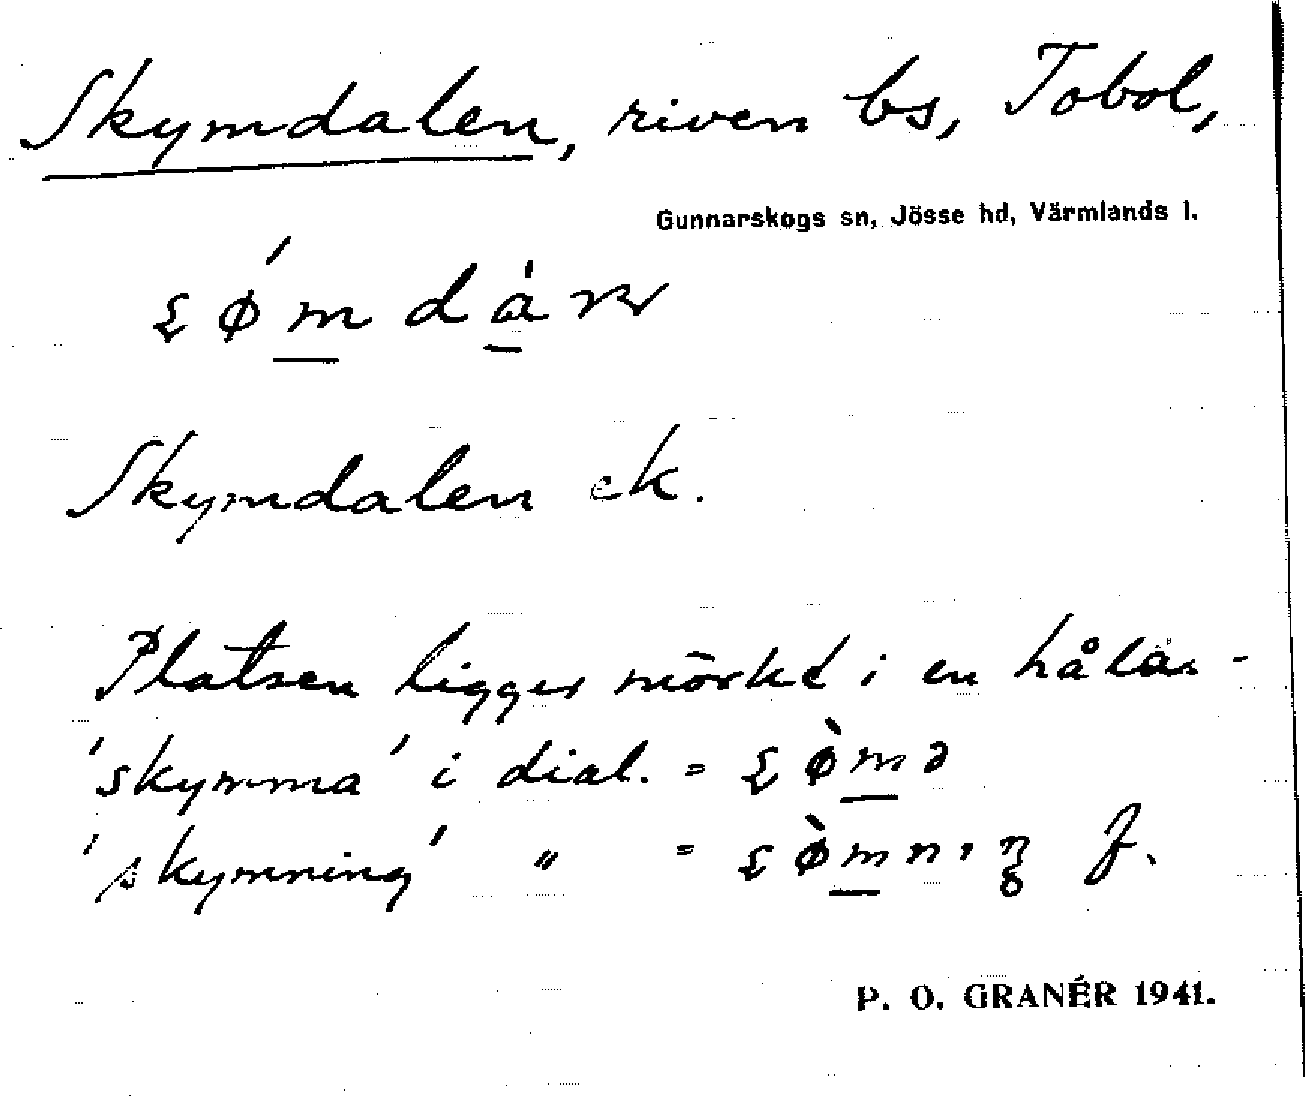 Skymdalen, riven bs, Tobol,
Gunnarskogs sn, Jösse hd, Värmlands l.
Skymdalen ek.
Platsen ligger mörkt i en håla -
'skymma' i dial. =
'skymning' " = f.
P. O. GRANÉR 1941.